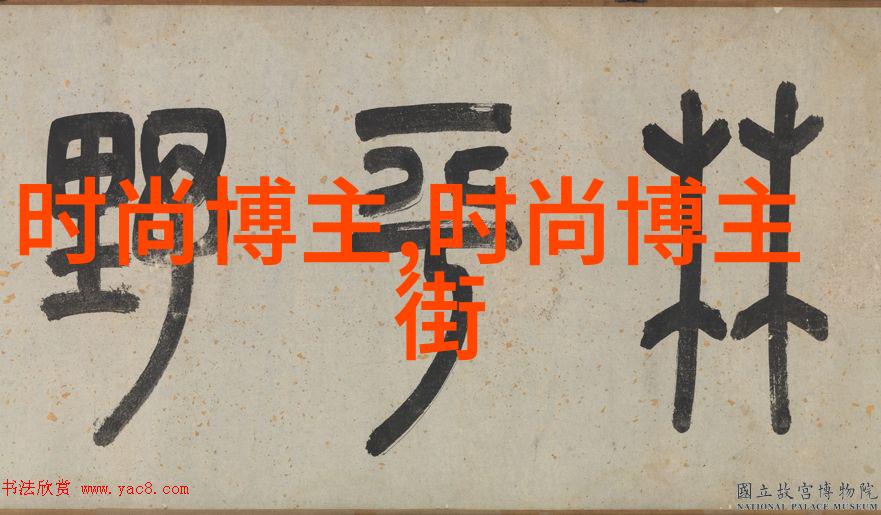 林平野
时尚博主,时尚博主
街
书法欣赏 www.yac8.com
國立故宮博物院
NATIONAL PALACE MUSEUM